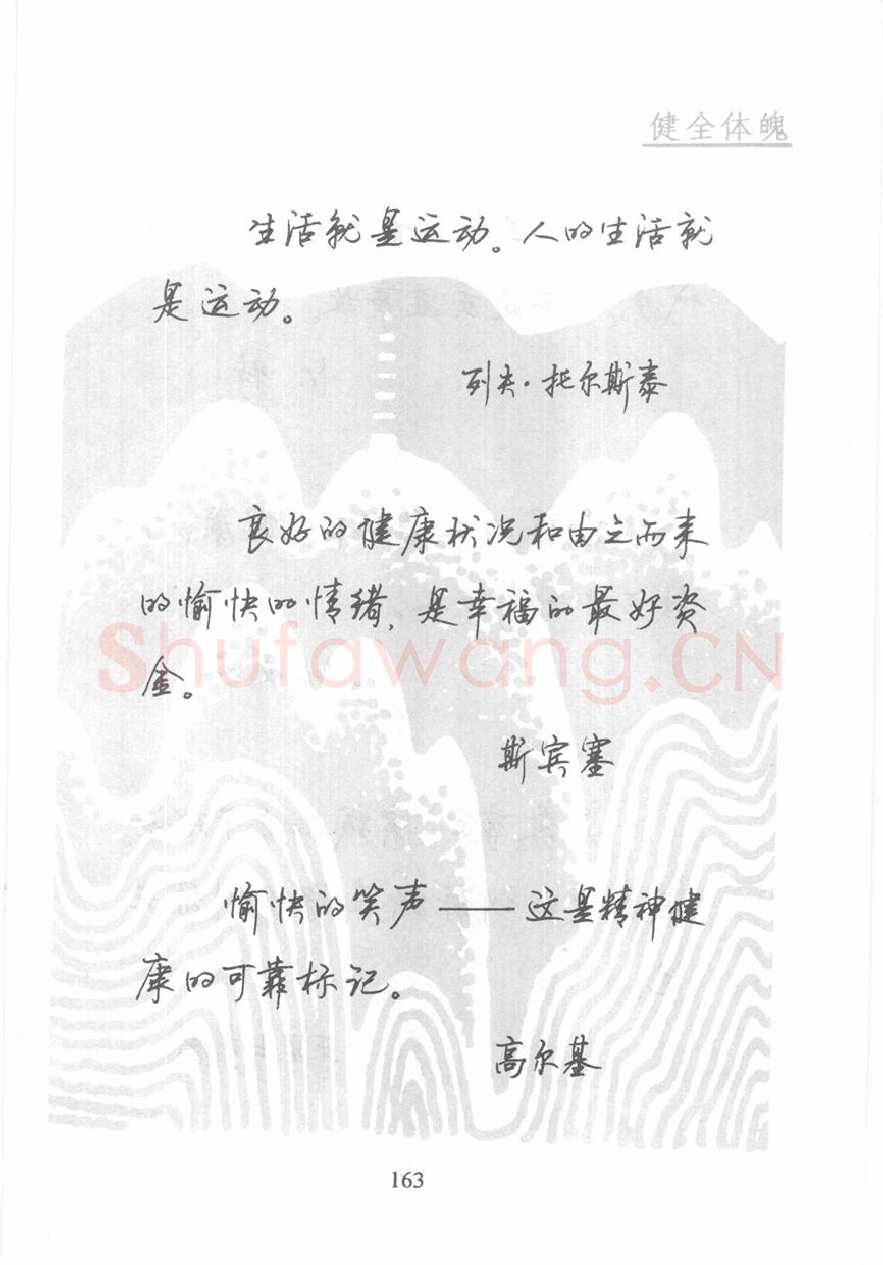 健全体魄
生活就是运动。人的生活就
是运动。
列夫·托尔斯泰
良好的健康状况和由之而来
的愉快的情绪,是幸福的最好资
金。
Shufawang.CN
斯宾塞
愉快的笑声——这是精神健
康的可靠标记。
高尔基
163